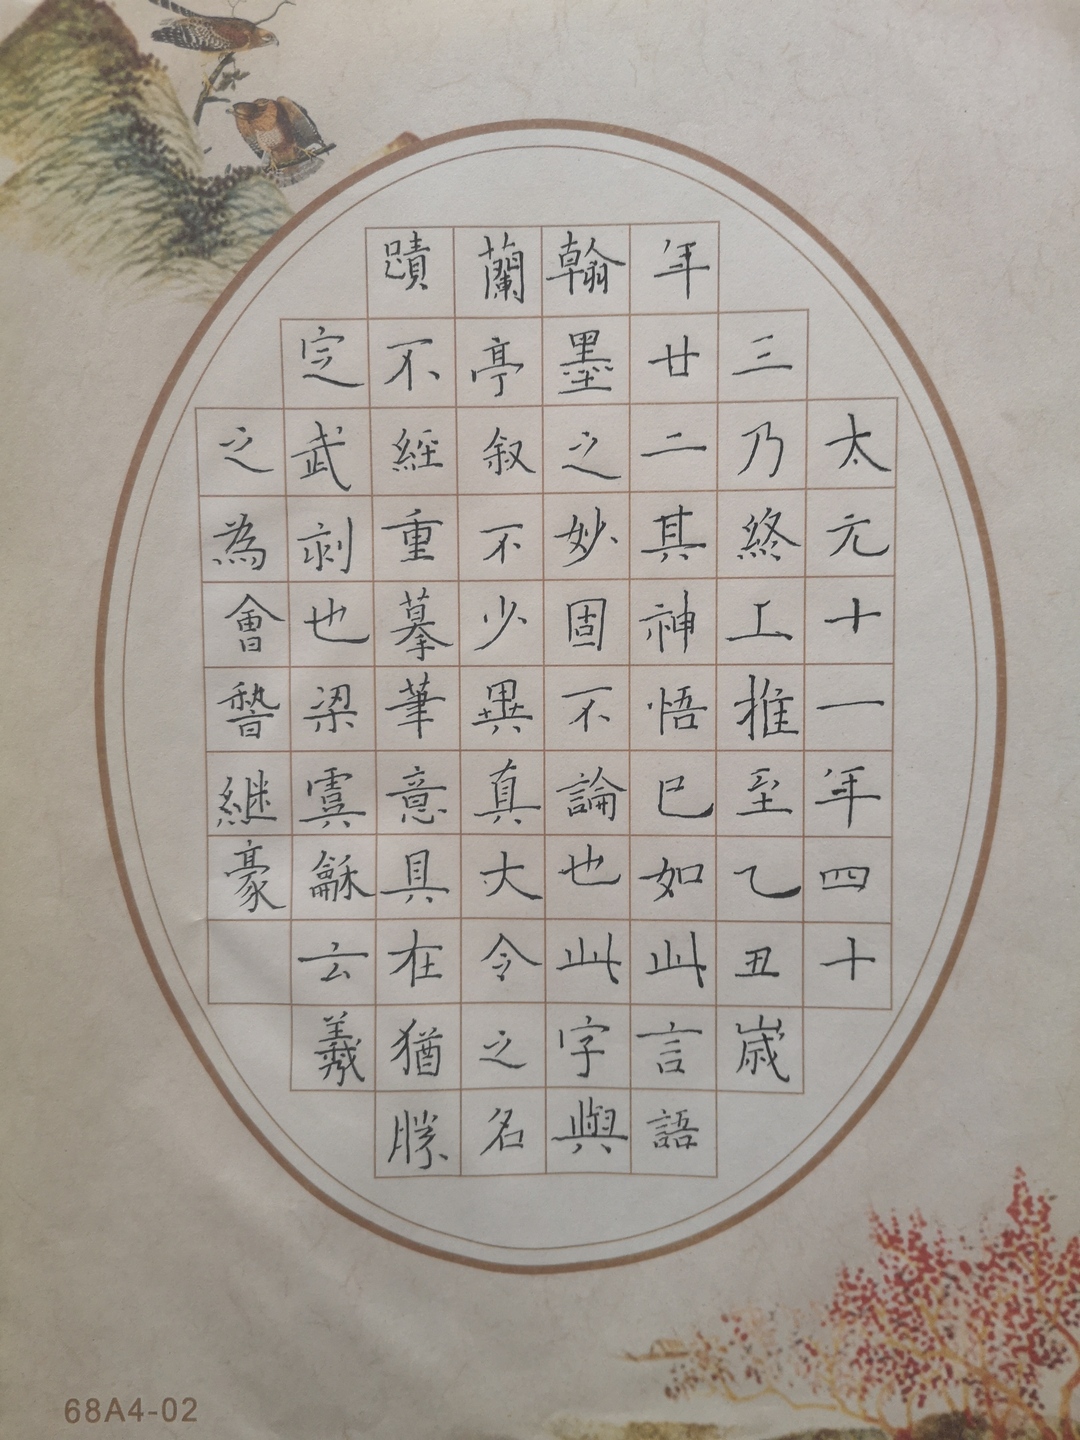 太元十一年四十
三乃終工推至乙丑歲
年廿二其神悟已如此言語
翰墨之妙固不論也此字與
蘭亭叙不少異真大令之名
蹟不經重摹筆意具在猶勝
定武剥也梁虞龢云羲
之為會稽継豪
68A4-02